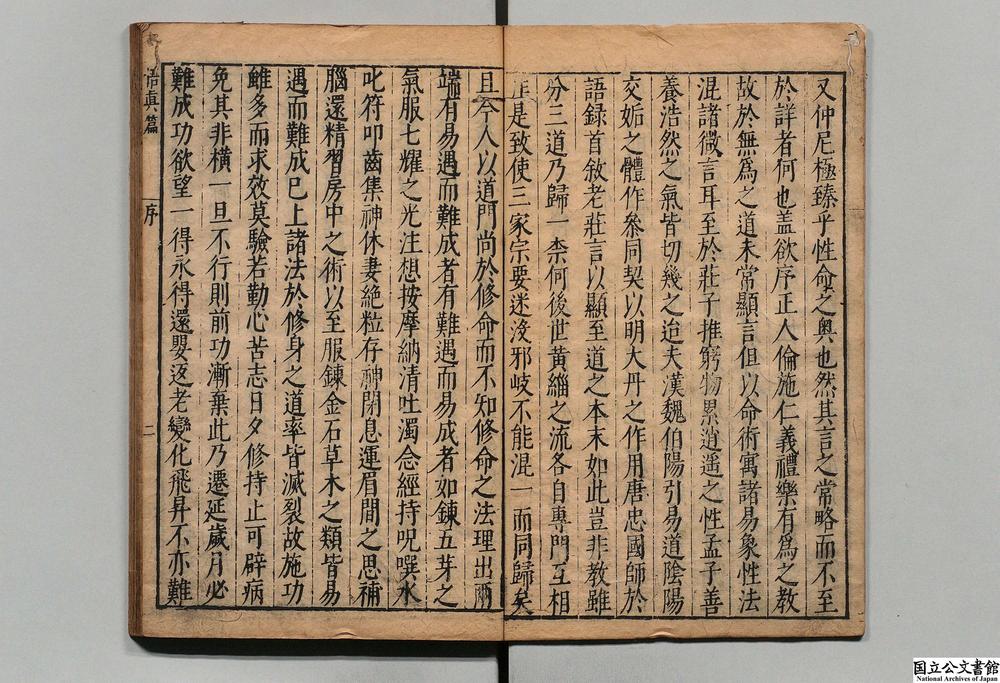 又仲尼極臻乎性命之奧也然其言之常略而不至
於詳者何也盖欲序正人倫施仁義禮樂有爲之教
故於無爲之道未常顯言但以命術寓諸易象性法
混諸微言耳至於莊子推窮物累逍遥之性孟子善
養浩然之氣皆切幾之迨夫漢魏伯陽引易道陰陽
交姤之體作叅同契以明大丹之作用唐忠國師於
語録首敘老莊言以顯至道之本末如此豈非教雖
分三道乃歸一柰何後世黃緇之流各自專門互相
非是致使三家宗要迷没邪岐不能混一而同歸矣
且今人以道門尚於修命而不知修命之法理出兩
端有易遇而難成者有難遇而易成者如鍊五芽之
氣服七耀之光注想按摩納清吐濁念經持呪噀水
叱符叩齒集神休妻絶粒存神閉息運眉間之思補
腦還精習房中之術以至服鍊金石草木之類皆易
遇而難成已上諸法於修身之道率皆滅裂故施功
雖多而求效莫驗若勤心苦志日夕修持止可辟病
免其非橫一旦不行則前功漸棄此乃遷延歲月必
難成功欲望一得永得還嬰返老變化飛昇不亦難
悟真篇 序 二
国立公文書館
National Archives of Japan